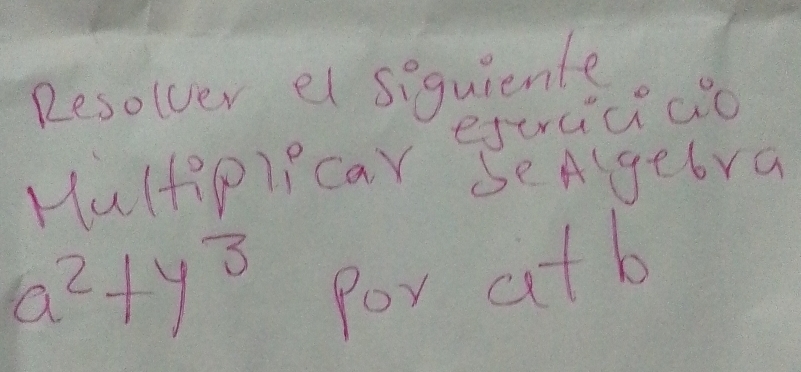 Resolver el siguiente
ejercicicio
Multiplicar de Algebra
a²+y³ por a+b